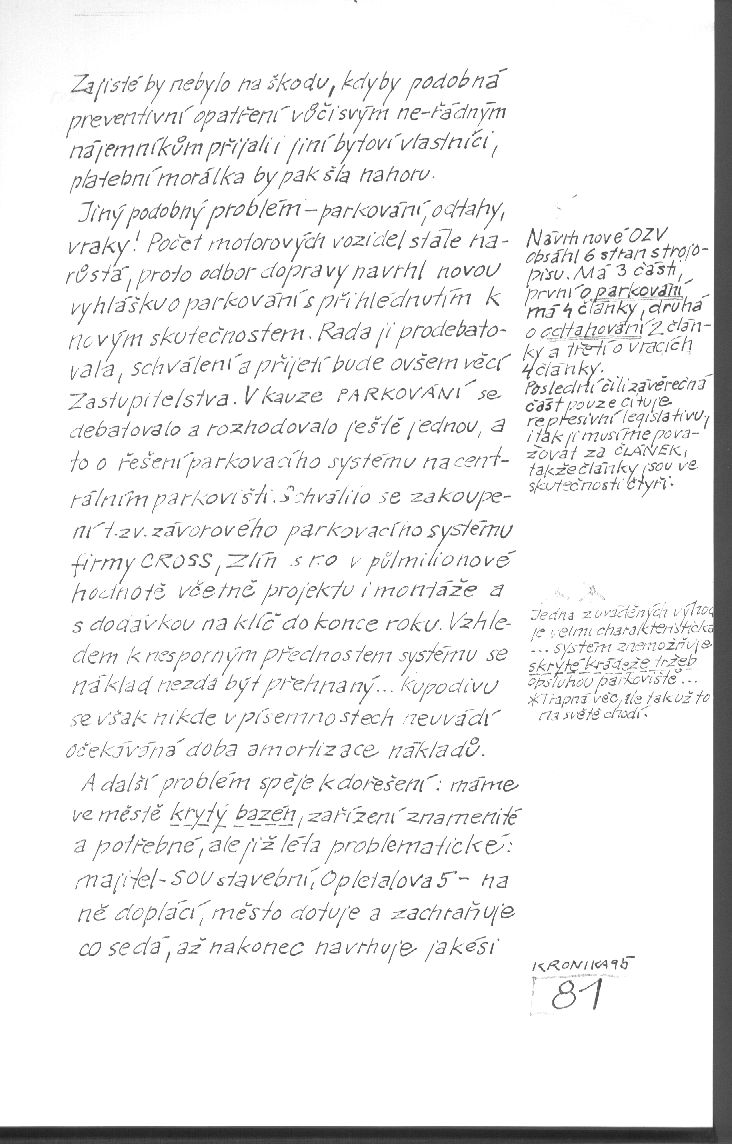 Zajisté by nebylo na škodu, kdyby podobná
preventivní opatření vůči svým ne-řádným
nájemníkům přijali i jiní bytoví vlastníci,
platební morálka by pak šla nahoru.
Jiný podobný problém – parkování, odtahy,
vraky! Počet motorových vozidel stále na-
růstá, proto odbor dopravy navrhl novou
vyhlášku o parkování s přihlédnutím k
novým skutečnostem. Rada ji prodebato-
vala, schválení a přijetí bude ovšem věcí
Zastupitelstva. V kauze PARKOVÁNÍ se
debatovalo a rozhodovalo ještě jednou, a
to o řešení parkovacího systému na cent-
rálním parkovišti. Schválilo se zakoupe-
ní t.zv. závorového parkovacího systému
firmy CROSS, Zlín s r.o v půlmilionové
hodnotě včetně projektu i montáže a
s dodávkou na klíč do konce roku. Vzhle-
dem k nesporným přednostem systému se
náklad nezdá být přehnaný... Kupodivu
se však nikde v písemnostech neuvádí
očekávaná doba amortizace nákladů.
A další problém spěje k dořešení: máme
ve městě krytý bazén, zařízení znamenité
a potřebné, ale již léta problematické:
majitel - SOU stavební, Opletalova 5 - na
ně doplácí, město dotuje a zachraňuje
co se dá, až nakonec navrhuje jakési
Návrh nové OZV
obsáhl 6 stran strojo-
pisu. Má 3 části,
první o parkování
má 4 články, druhá
o odtahování 2 člán-
ky a třetí o vracích
4 články.
Poslední čili závěrečná
část pouze cituje
represivní legislativu,
i tak ji musíme pova-
žovat za ČLÁNEK,
takže články jsou ve
skutečnosti čtyři.
Jedna z uváděných výhod
je velmi charakteristická
... systém znemožňuje
skryté krádeže tržeb
obsluhou parkoviště...
*Trapná věc, ale tak už to
na světě chodí.
KRONIKA 95
81